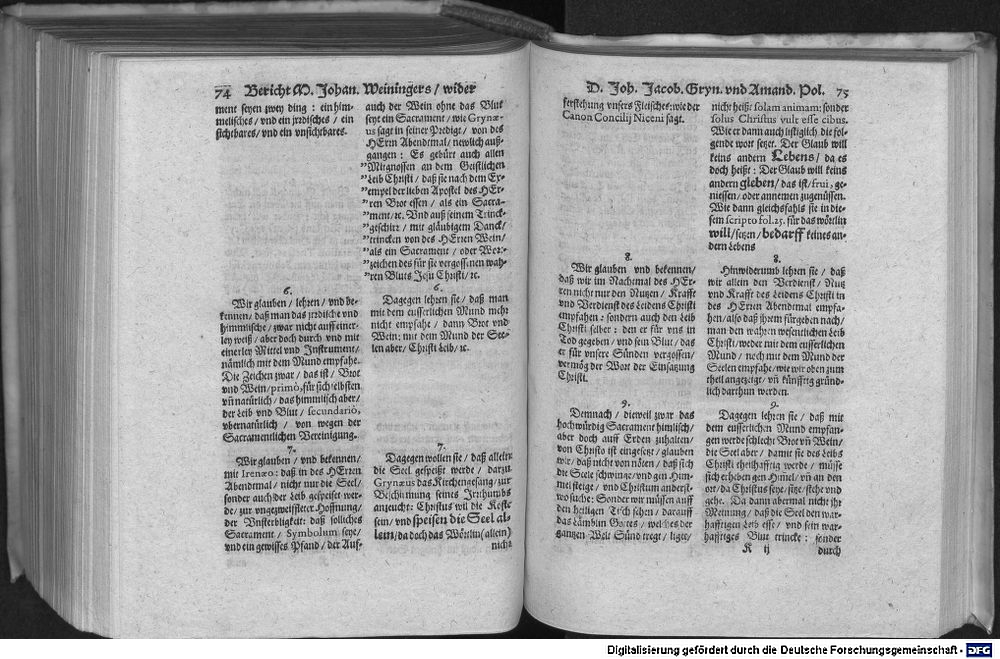 74 Bericht M. Johan. Weiningers / wider
ment seyen zwey ding : ein him-
melisches / vnd ein jrdisches / ein
sichtbares / vnd ein vnsichtbares.
6.
Wir glauben / lehren / vnd be-
kennen / daß man das jrrdische vnd
himmlische / zwar nicht auff einer-
ley weiß / aber doch durch vnd mit
einerley Mittel vnd Instrument /
nämlich mit dem Mund empfahe.
Die Zeichen zwar / das ist / Brot
vnd Wein / primò, für sich selbsten
vñ natürlich / das himmlisch aber /
der Leib vnd Blut / secundariò,
vbernatürlich / von wegen der
Sacramentlichen Vereinigung.
7.
Wir glauben / vnd bekennen /
mit Irenæo: daß in des HErren
Abendmal / nicht nur die Seel /
sonder auch der Leib gespeiset wer-
de / zur vngezweiffleter Hoffnung /
der Vnsterbligkeit: daß solliches
Sacrament / Symbolum seye /
vnd ein gewisses Pfand / der Auf-
auch der Wein ohne das Blut
seye ein Sacrament / wie Grynæ-
us sagt in seiner Predigt / von des
HErrn Abendmal / newlich auß-
gangen : Es gebürt auch allen
"Mitgnossen an dem Geistlichen
"Leib Christi / daß sie nach dem Ex-
"empel der lieben Apostel des HEr-
"ren Brot essen / als ein Sacra-
"ment / ꝛc. Vnd auß seinem Trinck-
"geschirr / mit gläubigem Danck /
"trincken von des HErren Wein /
"als ein Sacrament / oder War-
"zeichen des für sie vergossenen wah-
"ren Bluts Jesu Christi / ꝛc.
6.
Dagegen lehren sie / daß man
mit dem eusserlichen Mund mehr
nicht empfahe / dann Brot vnd
Wein: mit dem Mund der See-
len aber / Christi Leib / ꝛc.
7.
Dagegen wollen sie / daß allein
die Seel gespeißt werde / darzu
Grynæus das Kirchengesang / zur
Beschinung seines Irrthumbs
anzeucht: Christus wil die Koste
sein / vnd speisen die Seel al-
lein / da doch das Wörtlin (allein)
nicht
D. Joh. Jacob. Gryn. vnd Amand. Pol. 75
ferstehung vnsers Fleisches: wie der
Canon Concilij Niceni sagt.
8.
Wir glauben vnd bekennen /
daß wir im Nachtmal des HEr-
ren nicht nur den Nutzen / Krafft
vnd Verdienst des Leidens Christi
empfahen : sondern auch den Leib
Christi selber : den er für vns in
Tod gegeben / vnd sein Blut / das
er für vnsere Sünden vergossen /
vermög der Wort der Einsatzung
Christi.
9.
Demnach / dieweil zwar das
hochwürdig Sacrament himlisch /
aber doch auff Erden zuhalten /
von Christo ist eingesetzt / glauben
wir / daß nicht von nöten / daß sich
die Seele schwinge / vnd gen Him-
mel steige / vnd Christum anderst-
wo suche : Sonder wir müssen auff
den heiligen Tisch sehen / darauff
das Lämblin Gottes / welches der
gantzen Welt Sünd tregt / ligte /
nicht heißt solam animam: sonder
solus Christus vult esse cibus.
Wie er dann auch listiglich die fol-
gende wort setzet. Der Glaub will
keins andern Lebens / da es
doch heißt : Der Glaub will keins
andern gleben / das ist / frui, ge-
niessen / oder annemen zugenüssen.
Wie dann gleichsfahls sie in die-
sem scripto fol. 25. für das wörtlin
will / setzen / bedarff keines an-
dern Lebens
8.
Hinwiderumb lehren sie / daß
wir allein den Verdienst / Nutz
vnd Krafft des Leidens Christi in
des HErren Abendmal empfa-
hen / also daß jhrem fürgeben nach /
man den wahren wesentlichen Leib
Christi / weder mit dem eusserlichen
Mund / noch mit dem Mund der
Seelen empfahe / wie wir oben zum
theil angezeigt / vñ künfftig gründ-
lich darthun werden.
9.
Dagegen lehren sie / daß mit
dem eusserlichen Mund empfan-
gen werde schlecht Brot vñ Wein /
die Seel aber / damit sie des Leibs
Christi theilhafftig werde / müsse
sich erheben gen Himel / vñ an den
ort / da Christus seye / sitze / stehe vnd
gehe. Da dann abermal nicht jhr
Meinung / daß die Seel den war-
hafftigen Leib esse / vnd sein war-
hafftiges Blut trincke : sonder
K ij durch
Digitalisierung gefördert durch die Deutsche Forschungsgemeinschaft - DFG